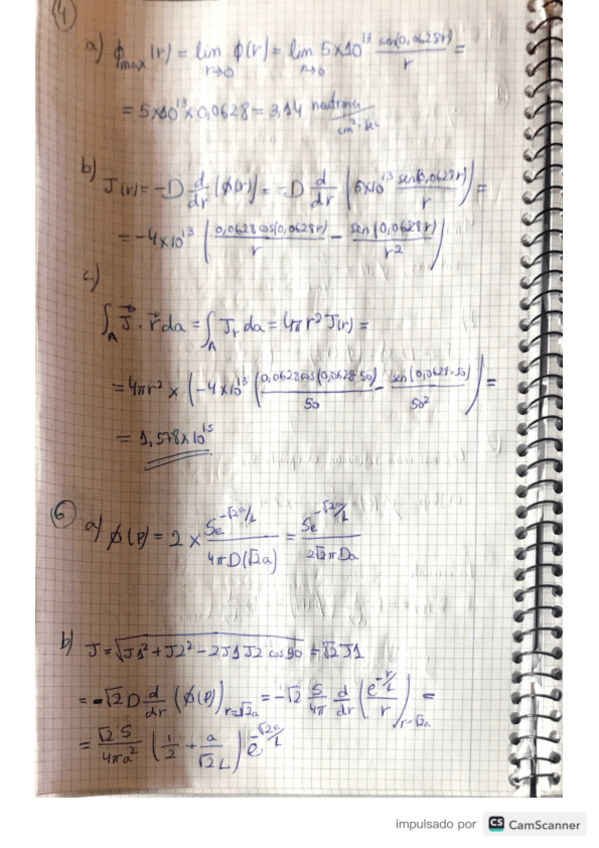 4
a) ϕmax (r) = lim r→0 ϕ(r) = lim r→0 5×10^13 sen(0,0628r)/r =
= 5×10^13 × 0,0628 = 3,14 neutrones/cm²·sec
b) J(r) = -D d/dr (ϕ(r)) = -D d/dr (5×10^13 sen(0,0628r)/r) =
= -4×10^13 (0,0628 cos(0,0628r)/r - sen(0,0628r)/r²)
c)
∫A J⃗ · r⃗ da = ∫A Jr da = 4πr² J(r) =
= 4πr² × (-4×10^13 (0,0628 cos(0,0628·50)/50 - sen(0,0628·50)/50²)) =
= 1,578×10^15
6 a) ϕ(P) = 2 × Se^(-√2a/L)/(4πD(√2a)) = Se^(-√2a/L)/(2√2πDa)
b) J = √(J1² + J2² - 2J1 J2 cos90) = √2J1
= -√2D d/dr (ϕ(P))r=√2a = -√2 S/4π d/dr (e^(-r/L)/r)r=√2a =
= √2 S/4πa² (1/2 + a/√2L) e^(-√2a/L)
impulsado por CS CamScanner